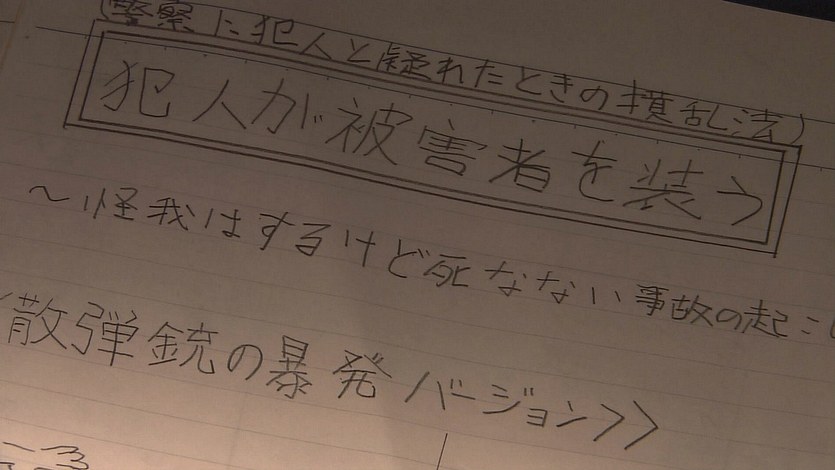 (警察に犯人と疑われたときの撹乱法)
犯人が被害者を装う
～怪我はするけど死なない事故の起こし
散弾銃の暴発バージョン>>